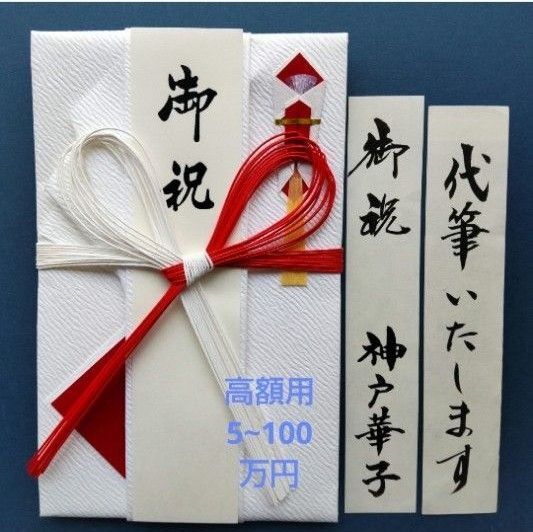 御祝
高額用
5~100
万円
御祝 神戸華子
代筆いたします